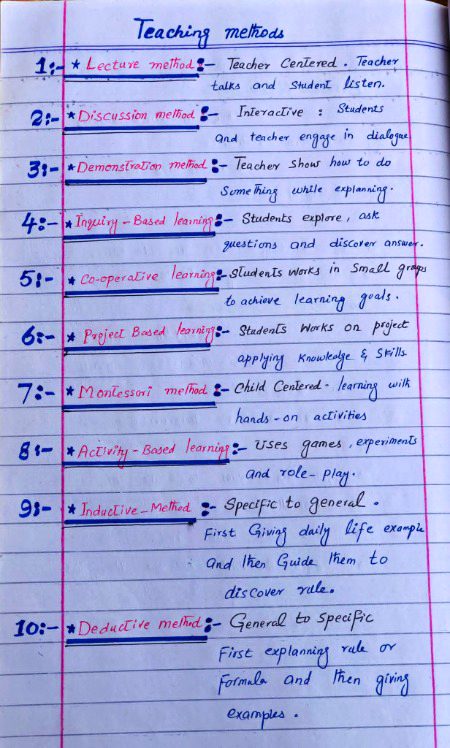 Teaching methods
1:- * Lecture method :- Teacher Centered. Teacher
talks and Student listen.
2:- * Discussion method :- Interactive : Students
and teacher engage in dialogue
3:- * Demonstration method :- Teacher Show how to do
Something while explanning.
4:- * Inquiry-Based learning :- Students explore, ask
questions and discover answer.
5:- * Co-operative learning :- Students works in Small groups
to achieve learning goals.
6:- * Project Based learning :- Students works on project
applying Knowledge & Skills
7:- * Montessori method :- Child Centered - learning with
hands-on activities
8:- * Activity-Based learning :- Uses games, experiments
and role-play.
9:- * Inductive-Method :- Specific to general.
First Giving daily life example
and then Guide them to
discover rule.
10:- * Deductive method :- General to Specific
First explanning rule or
Formula and then giving
examples.